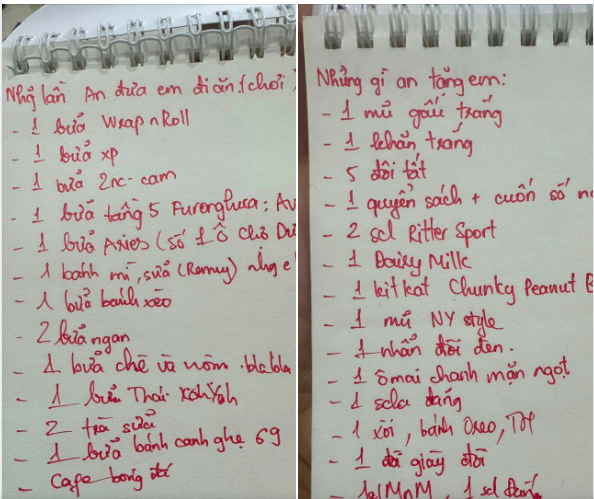 Nhg lần An đưa em đi ăn:(chơi
- 1 bữa Wrap n Roll
- 1 bữa xp
- 1 bữa 2nc-cam
- 1 bữa tầng 5
- 1 bữa Aries (số 1 Ô Chợ
- 1 bánh mì, sữa (Romy)
- 1 bữa bánh xèo
- 2 bữa ngan
- 1 bữa chè và nộm. blabla
- 1 bữa Thái
- 2 trà sữa
- 1 bữa bánh canh ghẹ 69
- Cafe bóng đá
Những gì an tặng em:
- 1 mũ gấu trắng
- 1 khăn trắng
- 5 đôi tất
- 1 quyển sách + cuốn sổ
- 2 scl Ritter Sport
- 1 Dairy Milk
- 1 kitkat Chunky Peanut B
- 1 mũ NY style
- 1 nhẫn đôi đen.
- 1 ômai chanh mặn ngọt
- 1 scla đắng
- 1 xôi, bánh Oreo,
- 1 đôi giày đôi
- MnM, 1 scl đắng